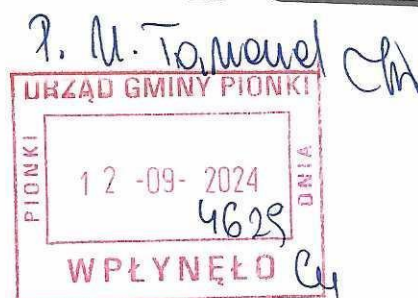 P. M.
URZĄD GMINY PIONKI
PIONKI
12 -09- 2024
DNIA
4629
WPŁYNĘŁO